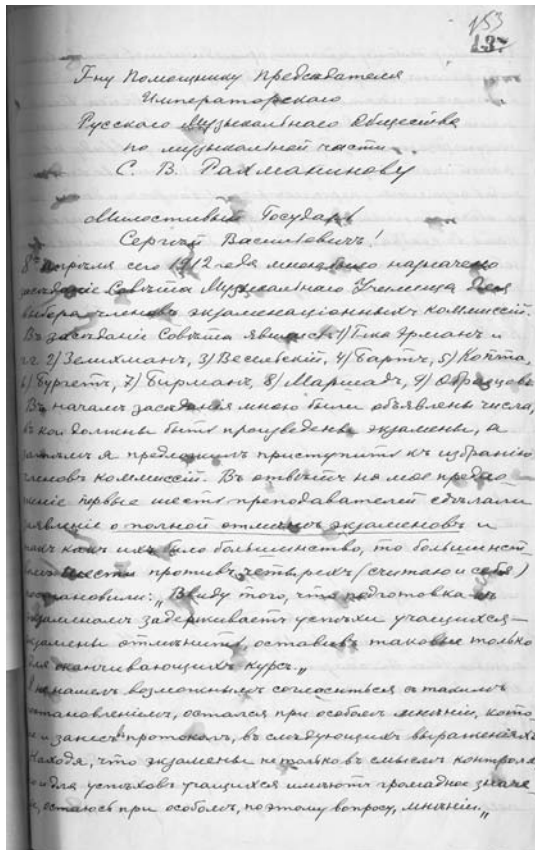 153
137
Г-ну Помощнику Председателя
Императорскаго
Русскаго Музыкальнаго Общества
по музыкальной части
С. В. Рахманинову
Милостивый Государь
Сергѣй Васильевичъ!
8го Апрѣля сего 1912 года мною было назначено
засѣданіе Совѣта Музыкальнаго Училища для
выбора членовъ экзаменаціонныхъ коммиссій.
Въ засѣданіе Совѣта явились 1) Г-жа Эрманъ и
г.г. 2) Зелихманъ, 3) Весельскій, 4) Бартъ, 5) Копта,
6) Бургетъ, 7) Бирманъ, 8) Маршадъ, 9) Образцовъ
Въ началѣ засѣданія мною были объявлены числа,
въ кои должны быть произведены экзамены, а
затѣмъ я предложилъ приступить къ избранію
членовъ коммиссій. Въ отвѣтъ на мое предло
женіе первые шесть преподавателей сдѣлали
заявленіе о полной отмѣнѣ экзаменовъ и
такъ какъ ихъ было большинство, то большинст
вомъ шести противъ четырехъ (считаю и себя)
постановили: „Ввиду того, что подготовка къ
экзаменамъ задерживаетъ успѣхи учащихся —
экзамены отмѣнить оставивъ таковые только
для оканчивающихъ курсъ.„
Я не нашелъ возможнымъ согласиться съ такимъ
постановленіемъ, остался при особомъ мнѣніи, кото
и занесъ протоколъ, въ слѣдующихъ выраженіяхъ
Находя, что экзамены не только въ смыслѣ контроля
но и для успѣховъ учащихся имѣютъ громадное значе
остаюсь при особомъ, по этому вопросу, мнѣніи.„